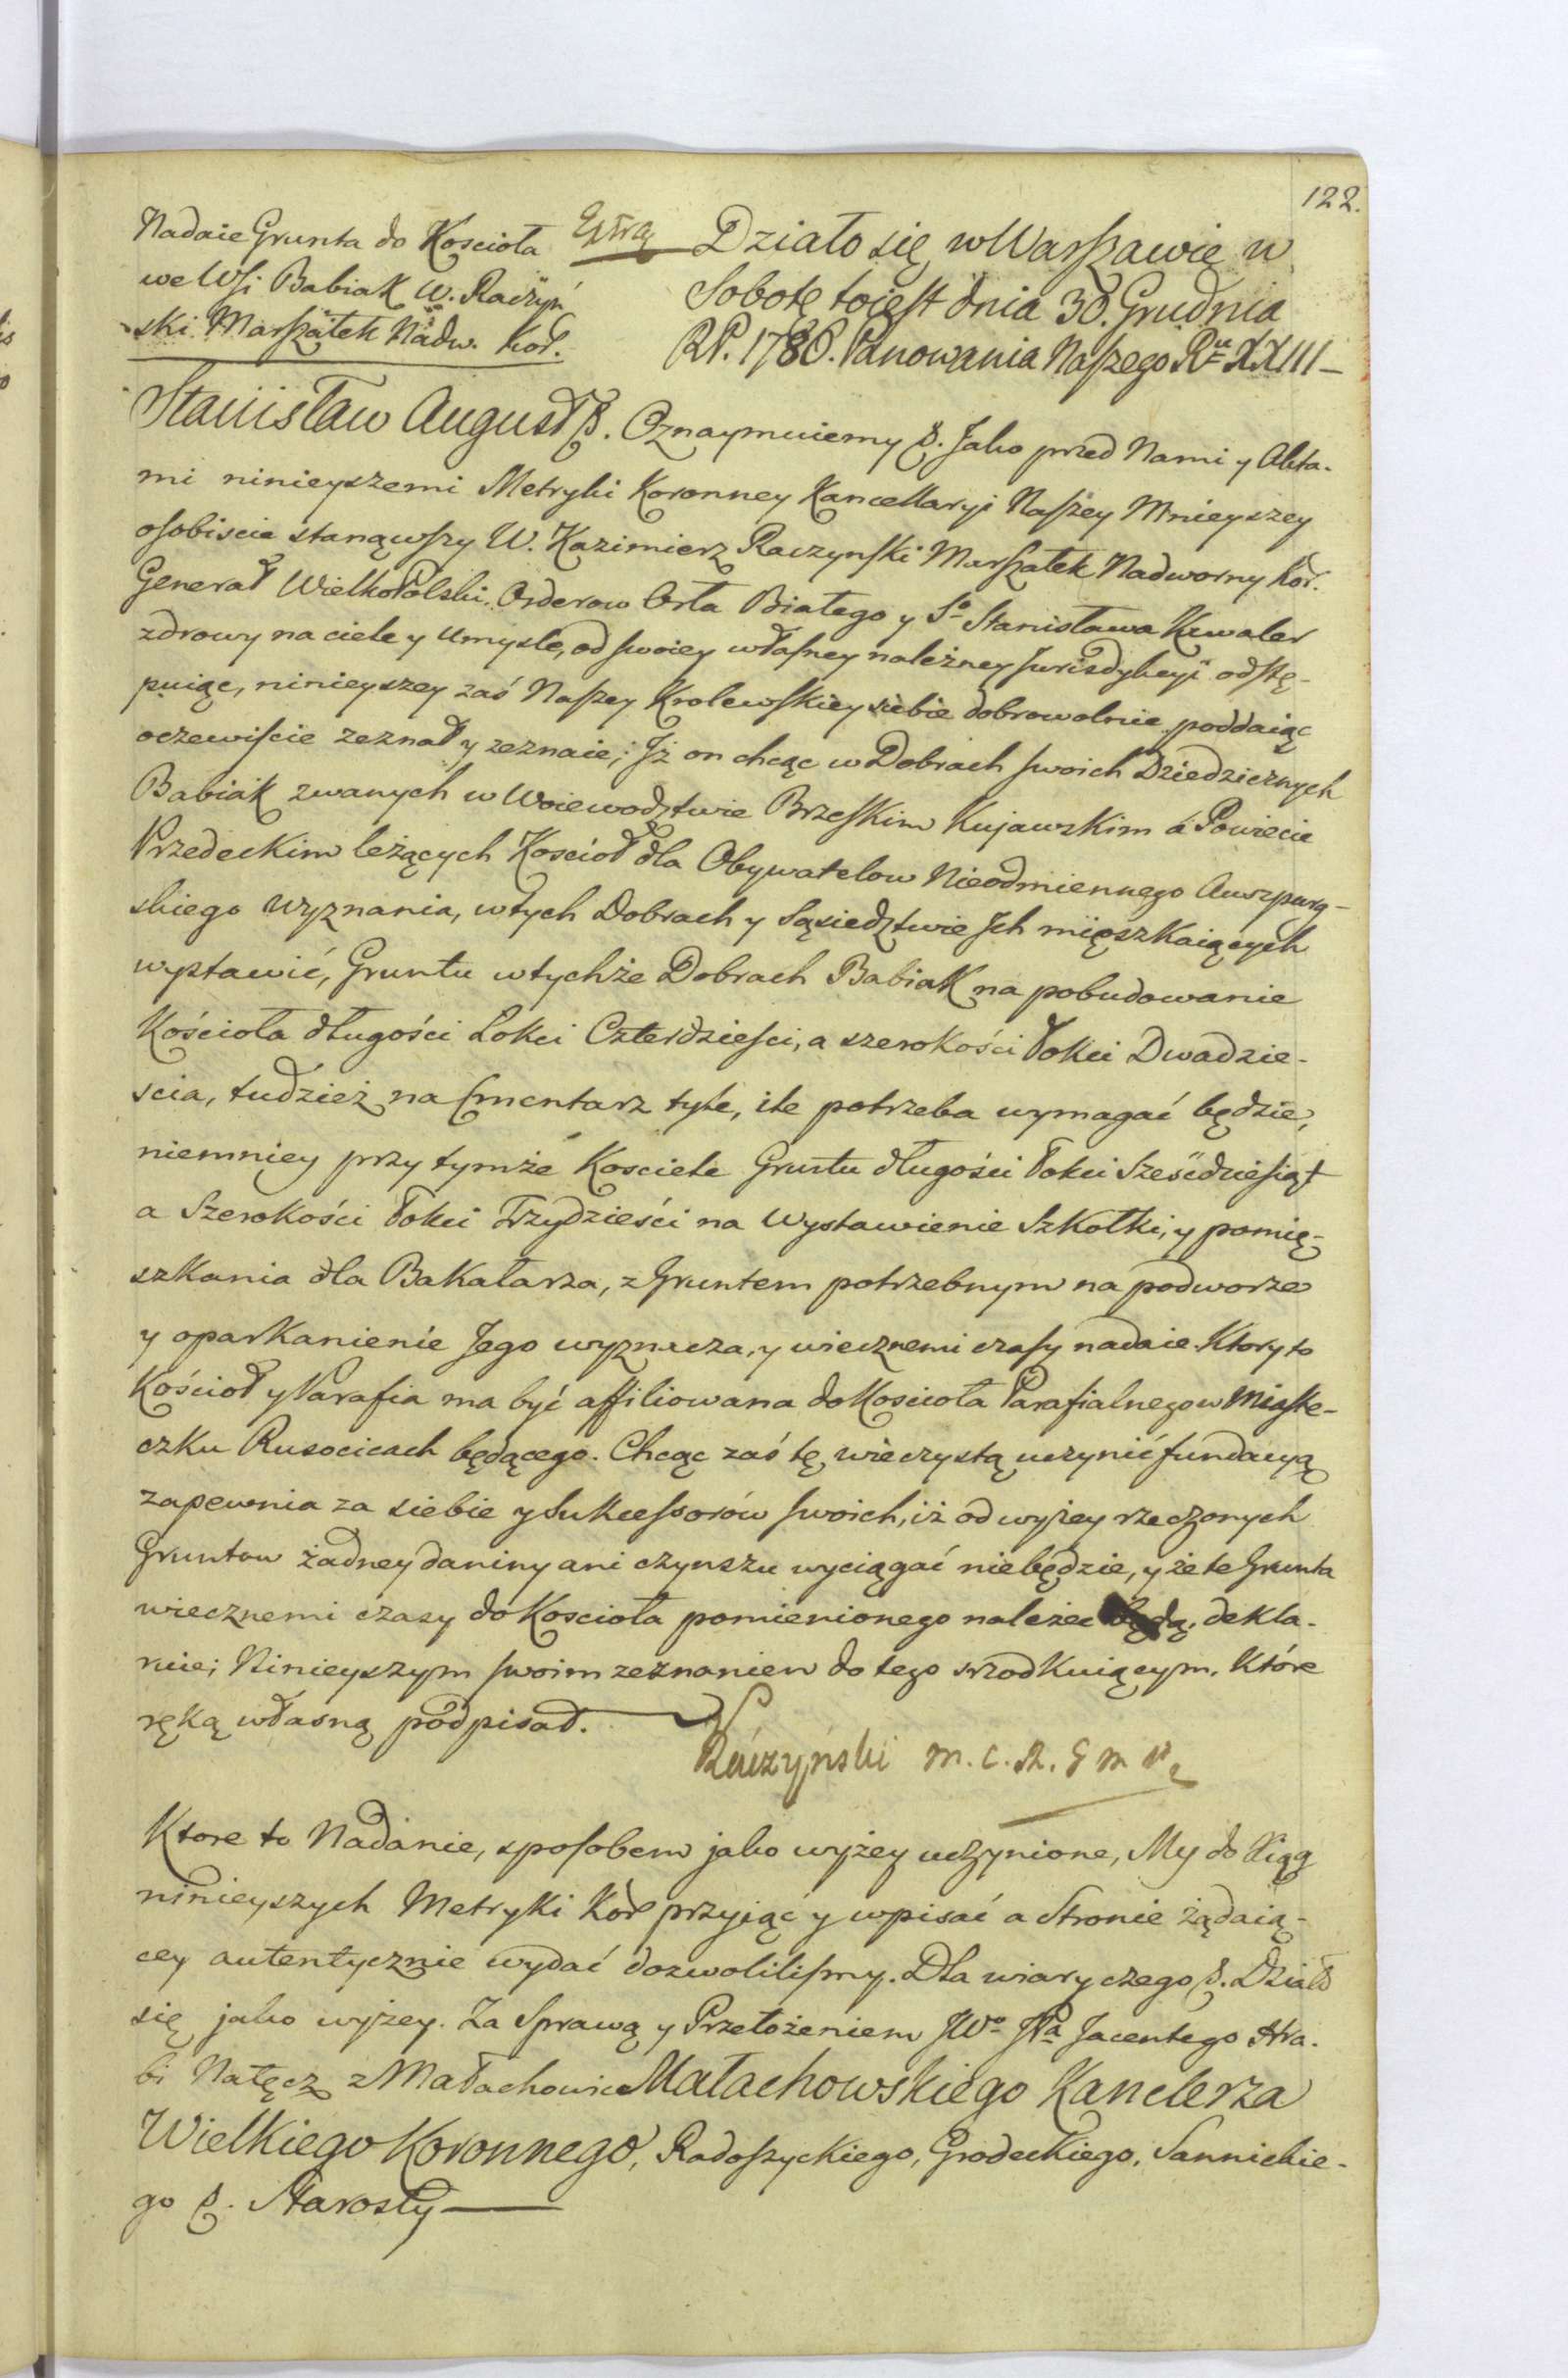 122.
Nadaie Grunta do Kościoła
we Wsi Babiak W. Raczyń
ski Marszałek Nadw. Kor.
Działo się w Warszawie w
Sobotę toiest dnia 30. Grudnia
RP. 1786. Panowania Naszego Ru XXIII
Stanisław August &. Oznaymuiemy &. Jako przed Nami y Akta-
mi ninieyszemi Metryki Koronney Kancellaryi Naszey Mnieyszey
osobiscie stanąwszy W. Kazimierz Raczynski Marszałek Nadworny Kor.
Generał Wielkopolski, Orderow Orła Białego y So Stanisława Kawaler
zdrowy na ciele y Umysle, od swoiey własney należney Jurisdykcyi odstę-
puiąc, ninieyszey zaś Naszey Krolewskiey siebie dobrowolnie poddaiąc
oczewiscie zeznał y zeznaie; Jż on chcąc w Dobrach swoich Dziedzicznych
Babiak zwanych w Woiewodztwie Brzeskim Kujawskim á Powiecie
Przedeckim leżących Kościoł dla Obywatelow Nieodmiennego Auszpurg-
skiego Wyznania, w tych Dobrach y Sąsiedztwie Jch mięszkaiących
wystawić, Gruntu w tychże Dobrach Babiak na pobudowanie
Kościoła długości Łokci Czterdziesci, a szerokości Łokci Dwadzie-
scia, tudzież na Cmentarz tyle, ile potrzeba wymagać będzie,
niemniey przy tymże Kosciele Gruntu długości Łokci Sześćdziesiąt
a Szerokości Łokci Trzydzieści na Wystawienie Szkołki, y pomię-
szkania dla Bakałarza, z Gruntem potrzebnym na podworze
y oparkanienie Jego wyznacza, y wiecznemi czasy nadaie. Ktory to
Kościoł y Parafia ma być affiliowana do Kościoła Parafialnego w Miaste-
czku Rusocicach będącego. Chcąc zaś tę wieczystą uczynić fundacyą
zapewnia za siebie y Sukcessorów swoich, iż od wyżey rzeczonych
Gruntow żadney daniny ani czynszu wyciągać niebędzie, y że te Grunta
wiecznemi czasy do Kościoła pomienionego należeć będą, dekla-
ruie; Ninieyszym swoim zeznaniem do tego srzodkuiącym. Które
ręką własną podpisał.
KRaczyński M. C. R. G M P
Ktore to Nadanie, sposobem jako wyżey uczynione, My do Xiąg
ninieyszych Metryki Kor przyjąć y wpisać a Stronie żądaią-
cey autentycznie wydać dozwolilismy. Dla wiary czego &. Działo
się jako wyżey. Za Sprawą y Przełożeniem JWo JPa Jacentego Hra-
bi Nałęcz z Małachowic Małachowskiego Kanclerza
Wielkiego Koronnego, Radoszyckiego, Grodeckiego, Sannickie-
go &. Starosty